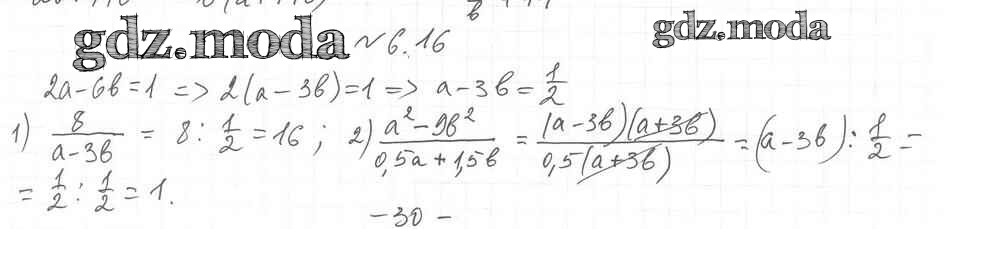 gdz.moda № 6.16 gdz.moda
2a - 6b = 1 => 2(a - 3b) = 1 => a - 3b = 1/2
1) 8/(a - 3b) = 8 : 1/2 = 16 ; 2) (a² - 9b²)/(0,5a + 1,5b) = (a - 3b)(a + 3b)/(0,5(a + 3b)) = (a - 3b) : 1/2 =
= 1/2 : 1/2 = 1.
- 30 -